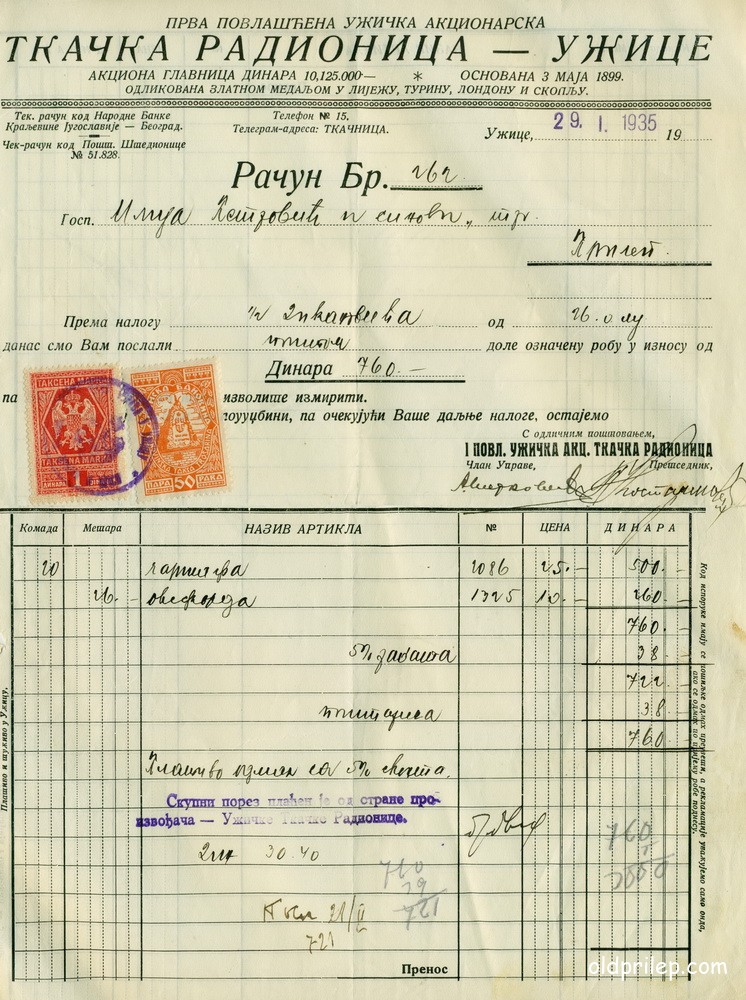 ПРВА ПОВЛАШЋЕНА УЖИЧКА АКЦИОНАРСКА
ТКАЧКА РАДИОНИЦА — УЖИЦЕ
АКЦИОНА ГЛАВНИЦА ДИНАРА 10,125.000·— * ОСНОВАНА 3 МАЈА 1899.
ОДЛИКОВАНА ЗЛАТНОМ МЕДАЉОМ У ЛИЈЕЖУ, ТУРИНУ, ЛОНДОНУ И СКОПЉУ.
Тек. рачун код Народне Банке
Краљевине Југославије — Београд.
Чек-рачун код Пошт. Штедионице
№ 51.828.
Телефон № 15.
Телеграм-адреса: ТКАЧНИЦА.
Ужице, 29. I. 1935 19
Рачун Бр. 262
Госп. Илија Петровић и синови, тр.
Прилеп.
Према налогу од 26. о
данас смо Вам послали поштом доле означену робу у износу од
Динара 760.—
па изволите измирити.
па очекујући Ваше даљње налоге, остајемо
С одличним поштовањем,
I ПОВЛ. УЖИЧКА АКЦ. ТКАЧКА РАДИОНИЦА
Члан Управе, Претседник,
ТАКСЕНА МАРКА
TAKSENA MARKA
1
ПАРА 50 PARA
Комада Метара НАЗИВ АРТИКЛА № ЦЕНА ДИНАРА
20 2086 25.- 500.-
26.- 1325 10.- 260.-
760.-
5% 38.-
722.-
38.-
760.-
Плативо са 5%
Скупни порез плаћен је од стране про-
извођача — Ужичке Ткачке Радионице.
30.40
760
39
721
760
5
3800
21/II
721
Пренос
Плативо и тужљиво у Ужицу.
Код испоруке имају се пошиљке одмах прегледати, а рекламације уважујемо само онда,
ако се одмах по пријему робе поднесу.
oldprilep.com